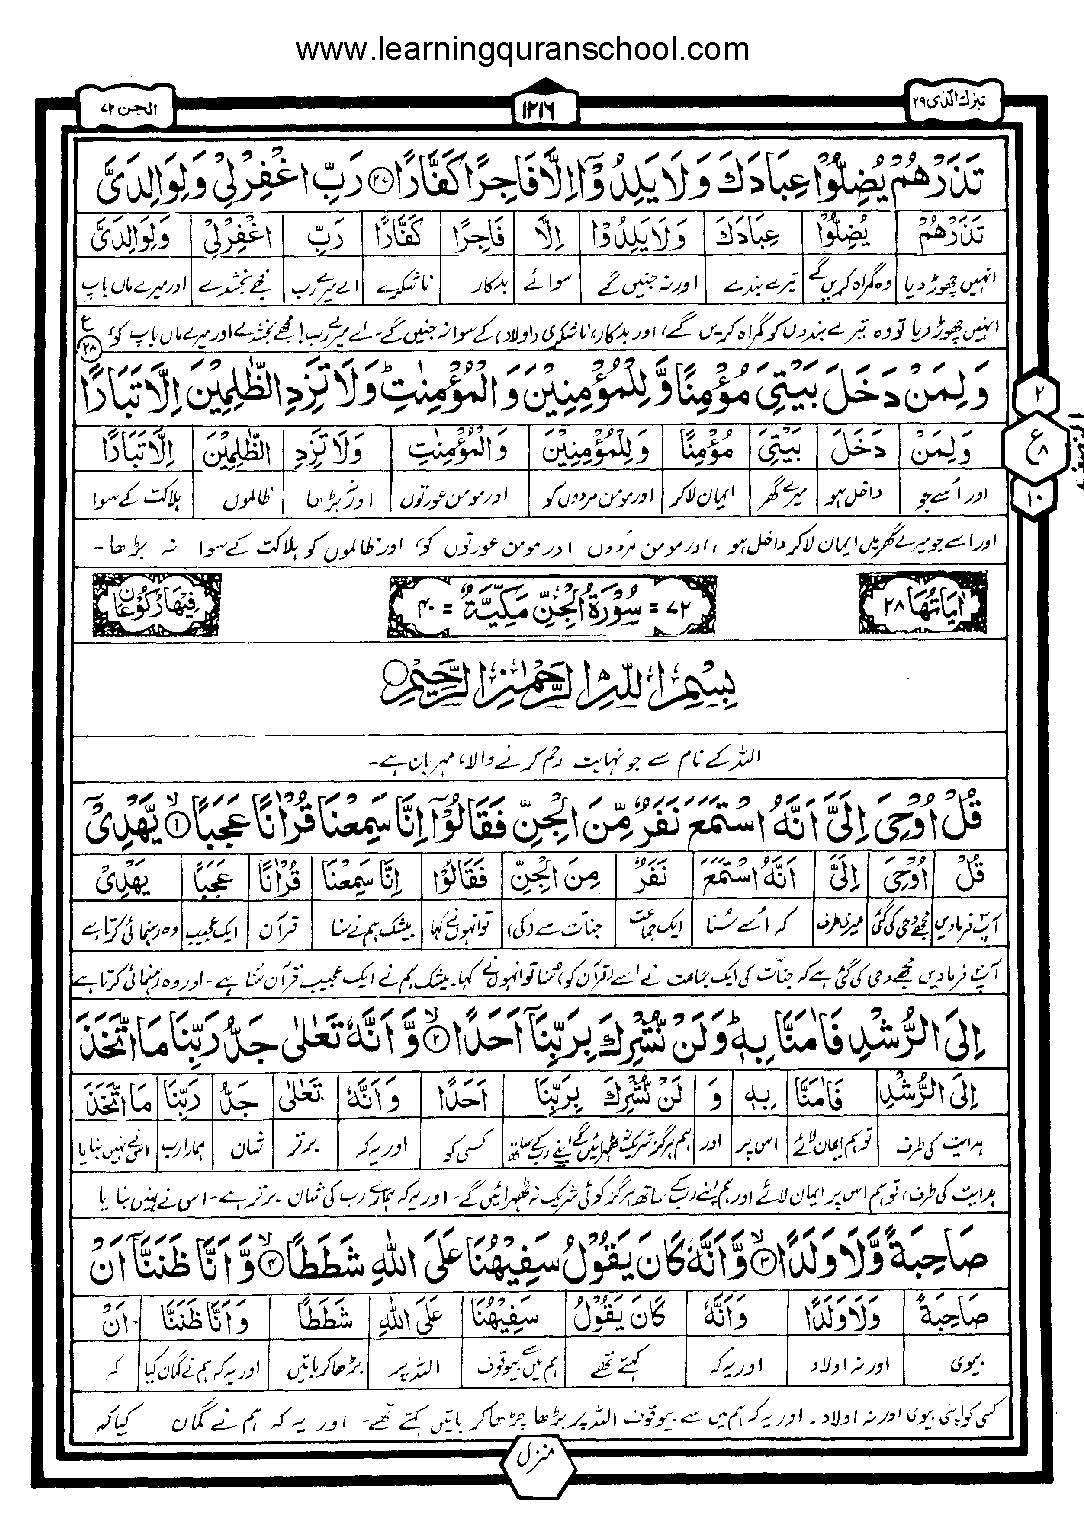 www.learningquranschool.com
تبٰرک الّذی ۲۹
۱۲۱۶
الجن ۷۲
تَذَرْهُمْ يُضِلُّوْا عِبَادَكَ وَلَا يَلِدُوْٓا اِلَّا فَاجِرًا كَفَّارًا ۲۷ رَبِّ اغْفِرْلِيْ وَلِوَالِدَيَّ
تَذَرْهُمْ يُضِلُّوْا عِبَادَكَ وَلَا يَلِدُوْٓا اِلَّا فَاجِرًا كَفَّارًا رَبِّ اغْفِرْلِيْ وَلِوَالِدَيَّ
انہیں چھوڑ دیا وہ گمراہ کریں گے تیرے بندے اور نہ جنیں گے سوائے بدکار ناشکرے اے میرے رب مجھے بخشدے اور میرے ماں باپ
انہیں چھوڑ دیا تو وہ تیرے بندوں کو گمراہ کریں گے، اور بدکار، ناشکری (اولاد) کے سوا نہ جنیں گے۔ اے میرے رب! مجھے بخشدے اور میرے ماں باپ کو،
ع
۲۸
وَلِمَنْ دَخَلَ بَيْتِيَ مُؤْمِنًا وَّلِلْمُؤْمِنِيْنَ وَالْمُؤْمِنٰتِ ؕ وَلَا تَزِدِ الظّٰلِمِيْنَ اِلَّا تَبَارًا
وَلِمَنْ دَخَلَ بَيْتِيَ مُؤْمِنًا وَّلِلْمُؤْمِنِيْنَ وَالْمُؤْمِنٰتِ وَلَا تَزِدِ الظّٰلِمِيْنَ اِلَّا تَبَارًا
اور اسے جو داخل ہو میرے گھر ایمان لاکر اور مومن مردوں کو اور مومن عورتوں اور نہ بڑھا ظالموں ہلاکت کے سوا
اور اسے جو میرے گھر میں ایمان لاکر داخل ہو، اور مومن مردوں اور مومن عورتوں کو، اور ظالموں کو ہلاکت کے سوا نہ بڑھا۔
۲
ع
۸
۱۰
اٰيَاتُهَا ۲۸
۷۲ = سُوْرَةُ الْجِنِّ مَكِّيَّةٌ = ۴۰
فِيْهَا رُكُوْعَانِ
بِسْمِ اللّٰهِ الرَّحْمٰنِ الرَّحِيْمِ
اللہ کے نام سے جو نہایت رحم کرنے والا، مہربان ہے۔
قُلْ اُوْحِيَ اِلَيَّ اَنَّهُ اسْتَمَعَ نَفَرٌ مِّنَ الْجِنِّ فَقَالُوْٓا اِنَّا سَمِعْنَا قُرْاٰنًا عَجَبًا ۱ يَّهْدِيْٓ
قُلْ اُوْحِيَ اِلَيَّ اَنَّهُ اسْتَمَعَ نَفَرٌ مِنَ الْجِنِّ فَقَالُوْٓا اِنَّا سَمِعْنَا قُرْاٰنًا عَجَبًا يَهْدِيْٓ
آپ فرمادیں مجھے وحی کی گئی میری طرف کہ اسے سُنا ایک جماعت جنات سے (کی) تو انہوں نے کہا بیشک ہم نے سنا قرآن ایک عجیب وہ رہنمائی کرتا ہے
آپ فرمادیں مجھے وحی کی گئی ہے کہ جنّات کی ایک جماعت نے اسے (قرآن کو) سُنا تو انہوں نے کہا۔ بیشک ہم نے ایک عجیب قرآن سُنا ہے۔ اور وہ رہنمائی کرتا ہے
اِلَى الرُّشْدِ فَاٰمَنَّا بِهٖ ؕ وَلَنْ نُّشْرِكَ بِرَبِّنَآ اَحَدًا ۲ وَّاَنَّهٗ تَعٰلٰى جَدُّ رَبِّنَا مَا اتَّخَذَ
اِلَى الرُّشْدِ فَاٰمَنَّا بِهٖ وَ لَنْ نُّشْرِكَ بِرَبِّنَآ اَحَدًا وَاَنَّهٗ تَعٰلٰى جَدُّ رَبِّنَا مَا اتَّخَذَ
ہدایت کی طرف تو ہم ایمان لائے اس پر اور ہم ہرگز شریک نہ ٹھہرائیں گے اپنے رب کے ساتھ کسی کو اور یہ کہ برتر شان ہمارا رب اس نے نہیں بنایا
ہدایت کی طرف، تو ہم اس پر ایمان لائے اور ہم اپنے رب کے ساتھ ہرگز کوئی شریک نہ ٹھہرائیں گے۔ اور یہ کہ ہمارے رب کی شان برتر ہے۔ اس نے نہیں بنایا
صَاحِبَةً وَّلَا وَلَدًا ۳ وَّاَنَّهٗ كَانَ يَقُوْلُ سَفِيْهُنَا عَلَى اللّٰهِ شَطَطًا ۴ وَّاَنَّا ظَنَنَّآ اَنْ
صَاحِبَةً وَلَا وَلَدًا وَاَنَّهٗ كَانَ يَقُوْلُ سَفِيْهُنَا عَلَى اللّٰهِ شَطَطًا وَاَنَّا ظَنَنَّآ اَنْ
بیوی اور نہ اولاد اور یہ کہ کہتے تھے ہم میں سے بیوقوف اللہ پر بڑھا کر باتیں اور یہ کہ ہم نے گمان کیا کہ
کسی کو اپنی بیوی اور نہ اولاد۔ اور یہ کہ ہم میں سے بیوقوف اللہ پر بڑھا چڑھا کر باتیں کہتے تھے۔ اور یہ کہ ہم نے گمان کیا کہ
منزل